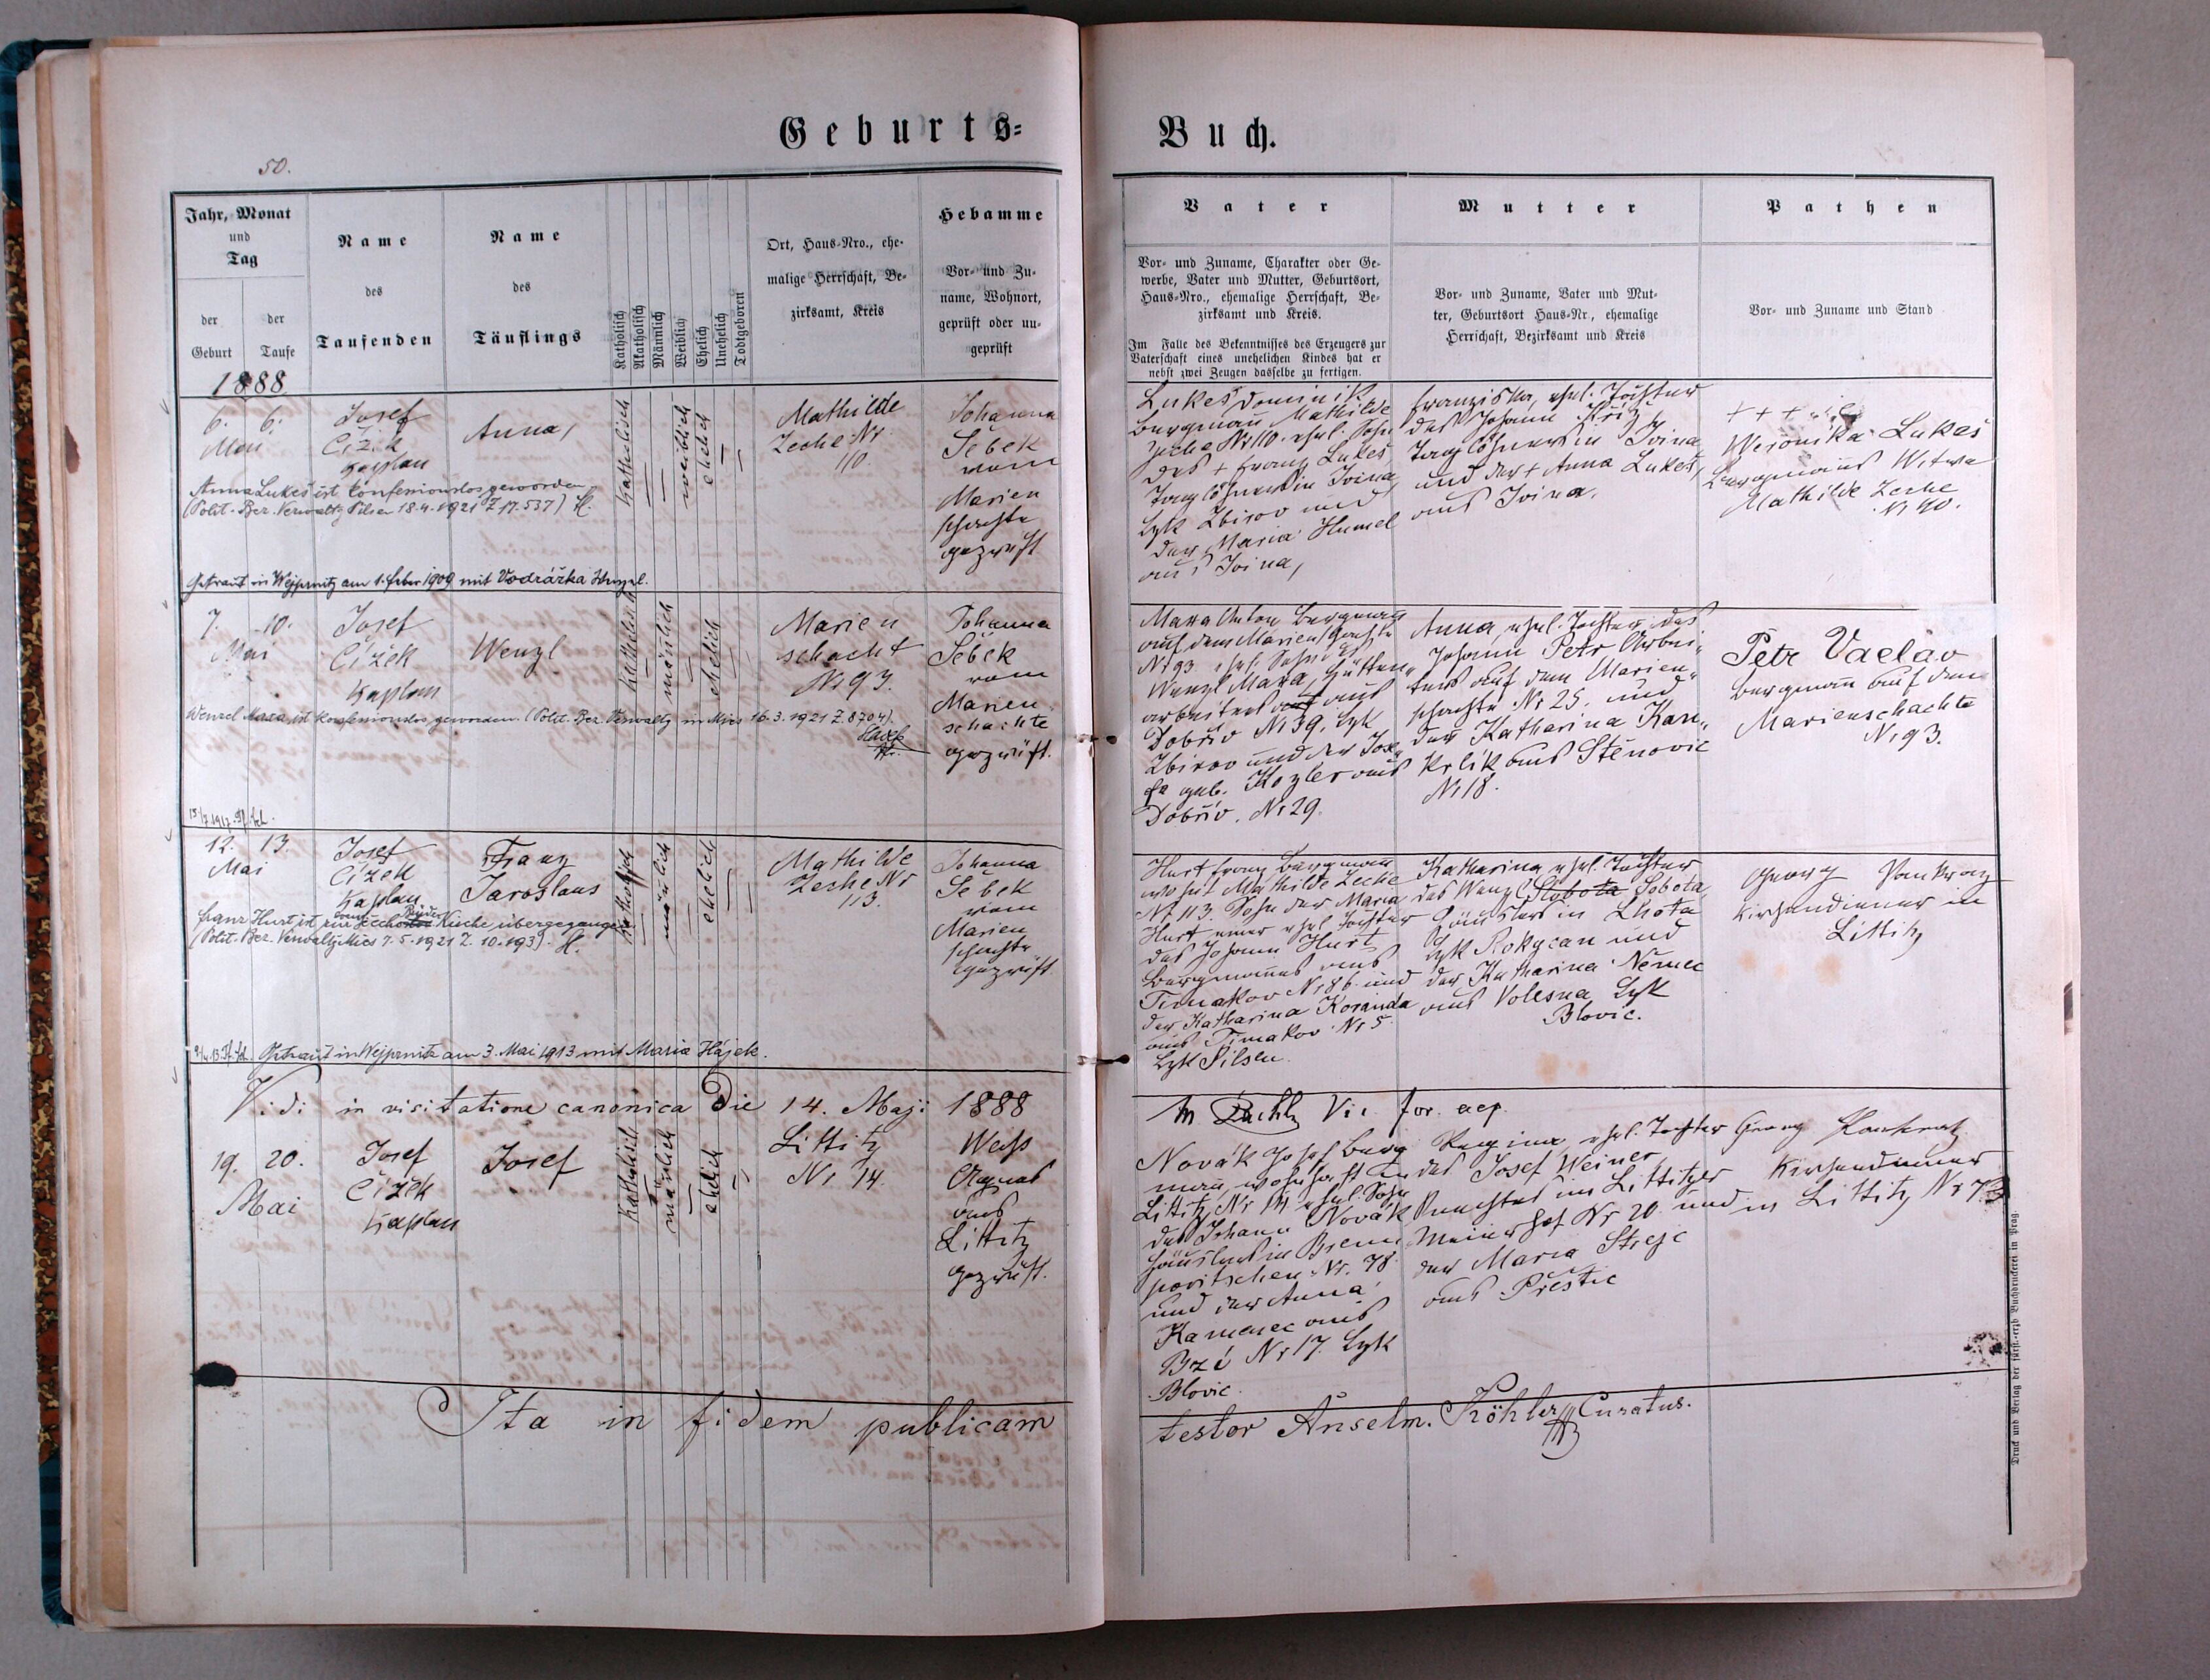 Geburts=
Buch.
50.
Jahr, Monat
und
Tag
der
Geburt
der
Taufe
Name
des
Taufenden
Name
des
Täuflings
Katholisch
Akatholisch
Männlich
Weiblich
Ehelich
Unehelich
Todtgeboren
Ort, Haus-Nro., ehe-
malige Herrschaft, Be-
zirksamt, Kreis
Hebamme
Vor- und Zu-
name, Wohnort,
geprüft oder un-
geprüft
Vater
Vor- und Zuname, Charakter oder Ge-
werbe, Vater und Mutter, Geburtsort,
Haus-Nro., ehemalige Herrschaft, Be-
zirksamt und Kreis.
Im Falle des Bekenntnisses des Erzeugers zur
Vaterschaft eines unehelichen Kindes hat er
nebst zwei Zeugen dasselbe zu fertigen.
Mutter
Vor- und Zuname, Vater und Mut-
ter, Geburtsort Haus-Nr., ehemalige
Herrschaft, Bezirksamt und Kreis
Pathen
Vor- und Zuname und Stand
1888
6. 6.
Mai
Josef
Čížek
Kaplan
Anna,
katholisch
weiblich
ehelich
Mathilde
Zeche Nr
110.
Johanna
Šebek
vom
Marien
schachte
geprüft
Anna Lukeš ist konfessionslos geworden
(Polit. Bez. Verwaltg Pilsen 18.4.1921 Z 17.537) H.
Getraut in Wejprnitz am 1. Feber 1909 mit Vodrážka Wenzel.
Lukeš Dominik
Bergmann Mathilde
Zeche Nr 110. ehel. Sohn
des + Franz Lukeš
Taglöhners in Jvina,
Bzk Zbirov und
der Maria Humel
aus Jvina,
Franziska, ehel. Tochter
des Johann Kříž
Taglöhners in Jvina
und der + Anna Lukeš,
aus Jvina.
+ + +
Weronika Lukeš
Bergmanns Witwe
Mathilde Zeche
N 110.
7. 10.
Mai
Josef
Čížek
Kaplan
Wenzl
katholisch
mänlich
ehelich
Marien
schacht
Nr 93.
Johanna
Šebek
vom
Marien-
schachte
geprüft.
Wenzel Mara ist konfessionslos geworden. (Polit. Bez. Verwaltg in Mies 16.3.1921 Z. 8704).
Mara Anton Bergmann
auf dem Marienschachte
Nr 93 ehel. Sohn des
Wenzl Mara, Hütten-
arbeiters aus
Dobřív Nr 39, Bzk
Zbirov und der Jose-
fa geb. Kozler aus
Dobřív. Nr 29.
Anna, ehel. Tochter des
Johann Petr Arbei-
ters auf dem Marien-
schachte Nr 25. und
der Katharina Kan-
krlík aus Stěnovic
Nr 18.
Petr Vaclav
Bergmann auf dem
Marienschachte
Nr 93.
15/7 1912
12. 13.
Mai
Josef
Čížek
Kaplan
Franz
Jaroslaus
katholisch
mänlich
ehelich
Mathilde
Zeche Nr
113.
Johanna
Šebek
vom
Marien
schachte
geprüft.
Franz Hurt ist zur Kirche übergegangen
(Polit. Bez. Verwaltg Mies 7.5.1921 Z. 10.193). H.
Getraut in Wejprnitz am 3. Mai 1913 mit Maria Hájek.
Hurt Franz Bergmann
Mathilde Zeche
Nr 113. Sohn der Maria
Hurt einer ehel. Tochter
des Johann Hurt
Bergmannes aus
Timakov Nr 86. und
der Katharina Koranda
aus Timakov Nr 5
Bzk Pilsen.
Katharina ehel. Tochter
des Wenzl Sobota Sobota,
Häuslers in Lhota
Bzk Rokycan und
der Katharina Němec
aus Volesna Bzk
Blovic.
Georg Pankratz
Kirchendiener in
Littitz
Vidi in visitatione canonica Die 14. Maji 1888
Vic. for.
19. 20.
Mai
Josef
Čížek
Kaplan
Josef
katholisch
mänlich
ehelich
Littitz
Nr 14.
Weiß
Agnes
aus
Littitz
geprüft.
Novák Josef Berg
mann, wohnhaft in
Littitz Nr 14 ehel. Sohn
des Johann Novák
Häuslers in Prenn
poritschen Nr. 78.
und der Anna
Kamenec aus
Bzí Nr 17. Bzk
Blovic.
Regina ehel. Tochter
des Josef Weiner
Knechtes im Littitzer
Meierhof Nr 20. und
der Maria Strejc
aus Přestic
Georg Pankratz
Kirchendiener
in Littitz Nr 73
Ita in fidem publicam
testor Anselm. Köhler Curatus.
Druck und Verlag der fürst-erzb Buchdruckerei in Prag.